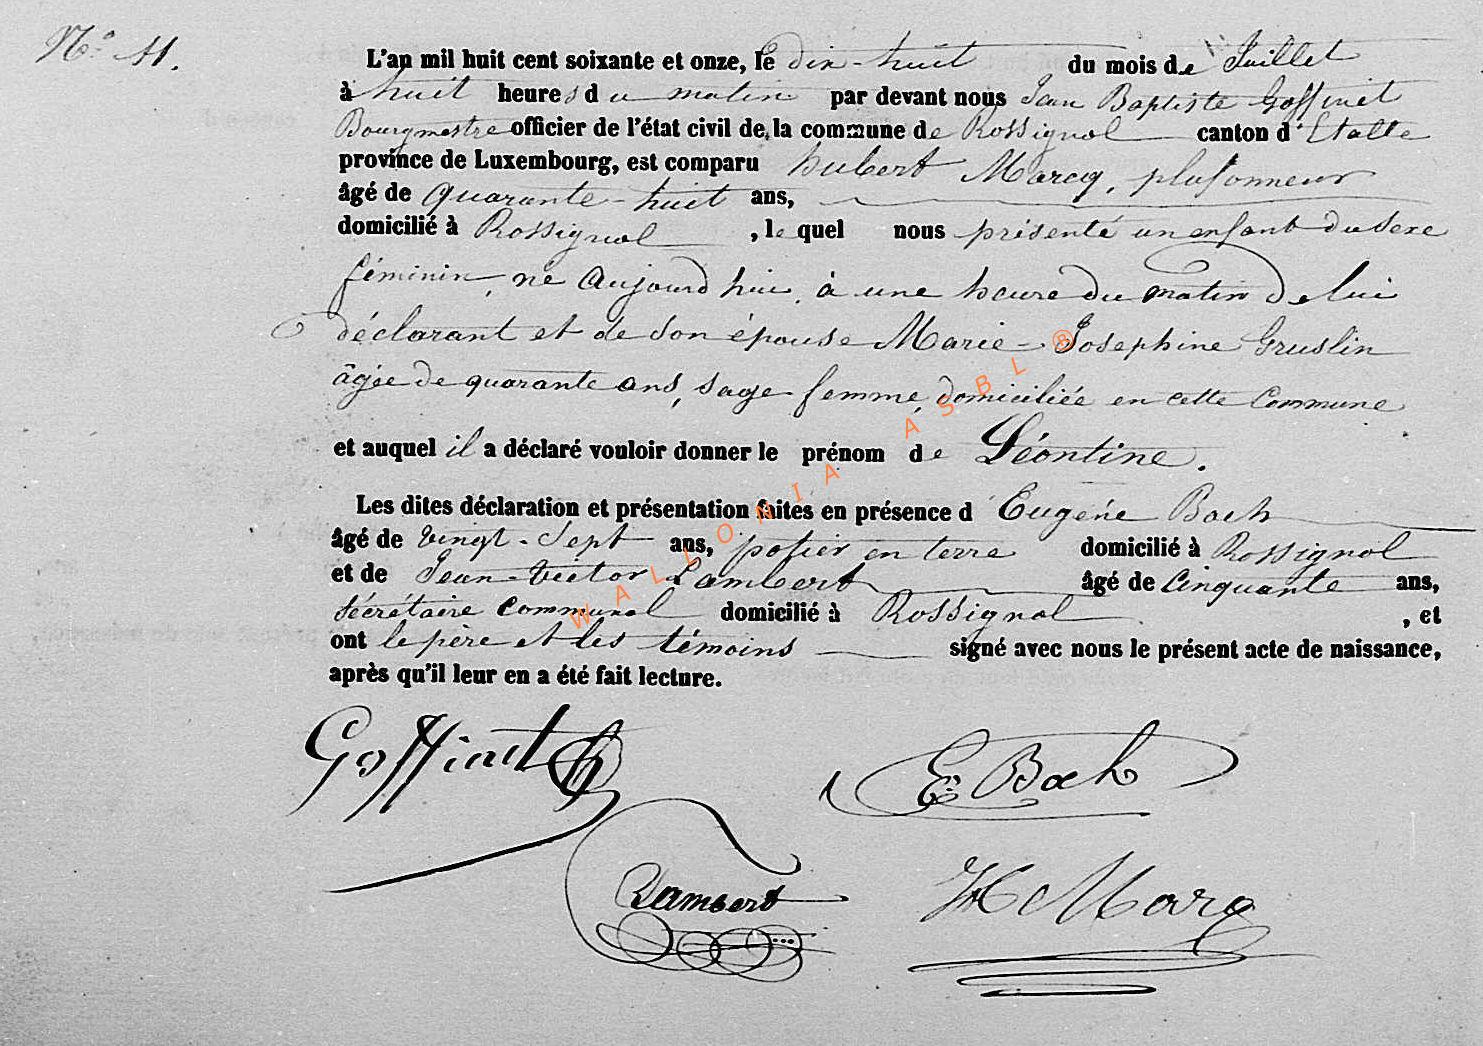 N.° 11.
L'an mil huit cent soixante et onze, le dix-huit du mois de Juillet
à huit heures du matin par devant nous Jean Baptiste Goffinet
Bourgmestre officier de l'état civil de la commune de Rossignol canton d'Etalle
province de Luxembourg, est comparu hubert Marcq, plafonneur
âgé de quarante-huit ans,
domicilié à Rossignol, lequel nous présenté un enfant du sexe
féminin, né aujourd'hui, à une heure du matin de lui
déclarant et de son épouse Marie-Josephine Gruslin
âgée de quarante ans, sage femme, domiciliée en cette Commune
et auquel il a déclaré vouloir donner le prénom de Léontine.
Les dites déclaration et présentation faites en présence d'Eugène Bach
âgé de vingt-sept ans, potier en terre domicilié à Rossignol
et de Jean-Victor Lambert âgé de cinquante ans,
sécrétaire communal domicilié à Rossignol, et
ont le père et les témoins signé avec nous le présent acte de naissance,
après qu'il leur en a été fait lecture.
Goffinet
E. Bach
Lambert
H Marcq
WALLONIA ASBL ®